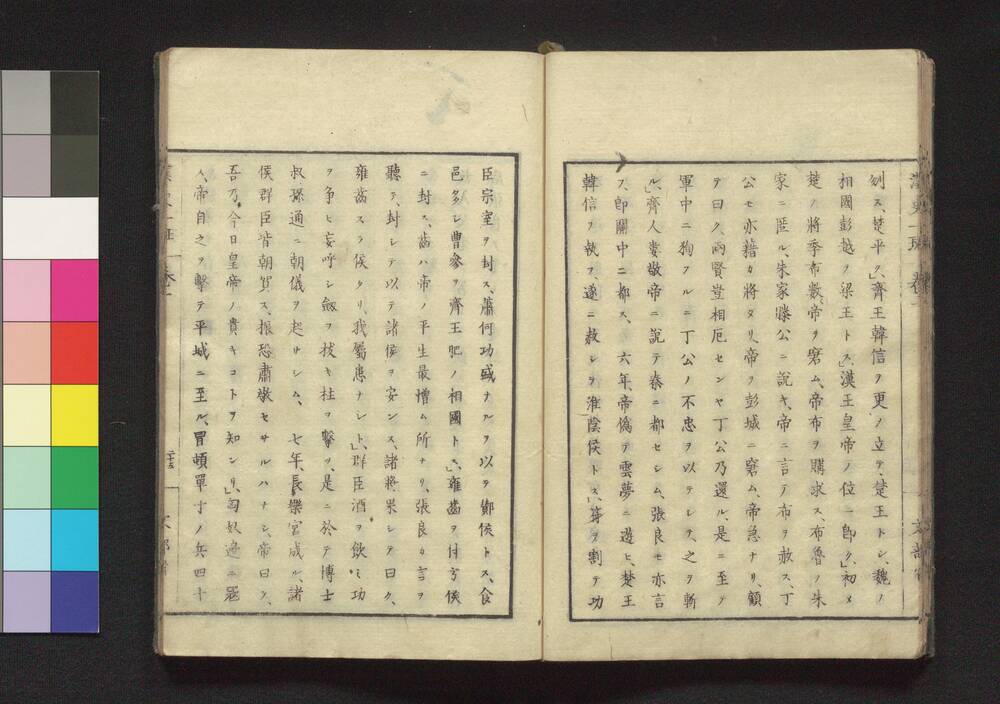 刎ス、楚平ク、」齊王韓信ヲ更ノ立テ、楚王トシ、魏ノ
相國彭越ヲ梁王トス、」漢王皇帝ノ位ニ即ク、」初メ
楚ノ將季布數、帝ヲ窘ム、帝布ヲ購求ス、布魯ノ朱
家ニ匿ル、朱家滕公ニ說キ、帝ニ言テ布ヲ赦ス、丁
公モ亦籍カ將タリ、帝ヲ彭城ニ窘ム、帝急ナリ、顧
テ曰ク、兩賢豈相厄センヤ丁公乃還ル、是ニ至テ
軍中ニ狥フルニ丁公ノ不忠ヲ以テシテ、之ヲ斬
ル、」齊人婁敬帝ニ說テ秦ニ都セシム、張良モ亦言
フ、即關中ニ都ス、 六年、帝偽テ雲夢ニ遊ヒ、楚王
韓信ヲ執フ、遂ニ赦シテ淮陰侯トス、」符ヲ割テ功
臣宗室ヲ封ス、蕭何功盛ナルヲ以テ酇侯トス、食
邑多シ曹參ヲ齊王肥ノ相國トス、」雍齒ヲ什方侯
ニ封ス、齒ハ帝ノ平生最憎ム所ナリ、張良カ言ヲ
聽テ、封シテ以テ諸侯ヲ安ンス、諸將果シテ曰ク、
雍齒スラ侯タリ、我屬患ナシト、」群臣酒ヲ飲ミ功
ヲ争ヒ妄呼シ劔ヲ拔キ柱ヲ擊ツ、是ニ於テ博士
叔孫通ニ朝儀ヲ起サシム、 七年、長樂宮成ル、諸
侯群臣皆朝賀ス、振恐肅敬セサルハナシ、帝曰ク、
吾乃今日皇帝ノ貴キコトヲ知ンリ、」匈奴邊ニ寇
ス、帝自之ヲ擊テ平城ニ至ル、冒頓單于ノ兵四十